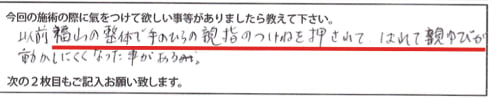 今回の施術の際に気をつけて欲しい事等がありましたら教えて下さい。
以前 福山の整体で手のひらの親指のつけねを押されて はれて親ゆびが
動かしにくくなった事がある為。
次の2枚目もご記入お願い致します。